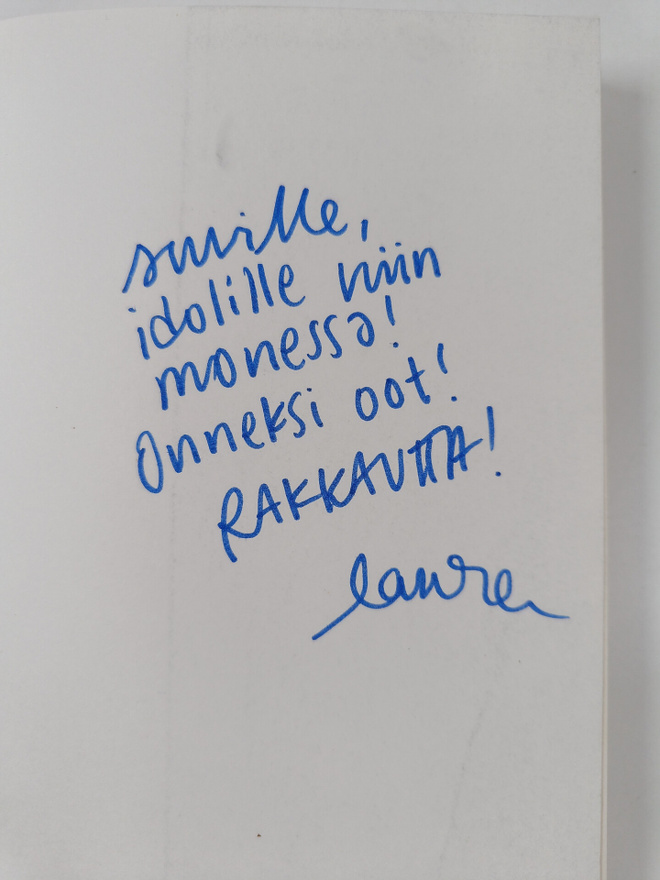 suville,
idolille niin
monessa!
Onneksi oot!
RAKKAUTTA!